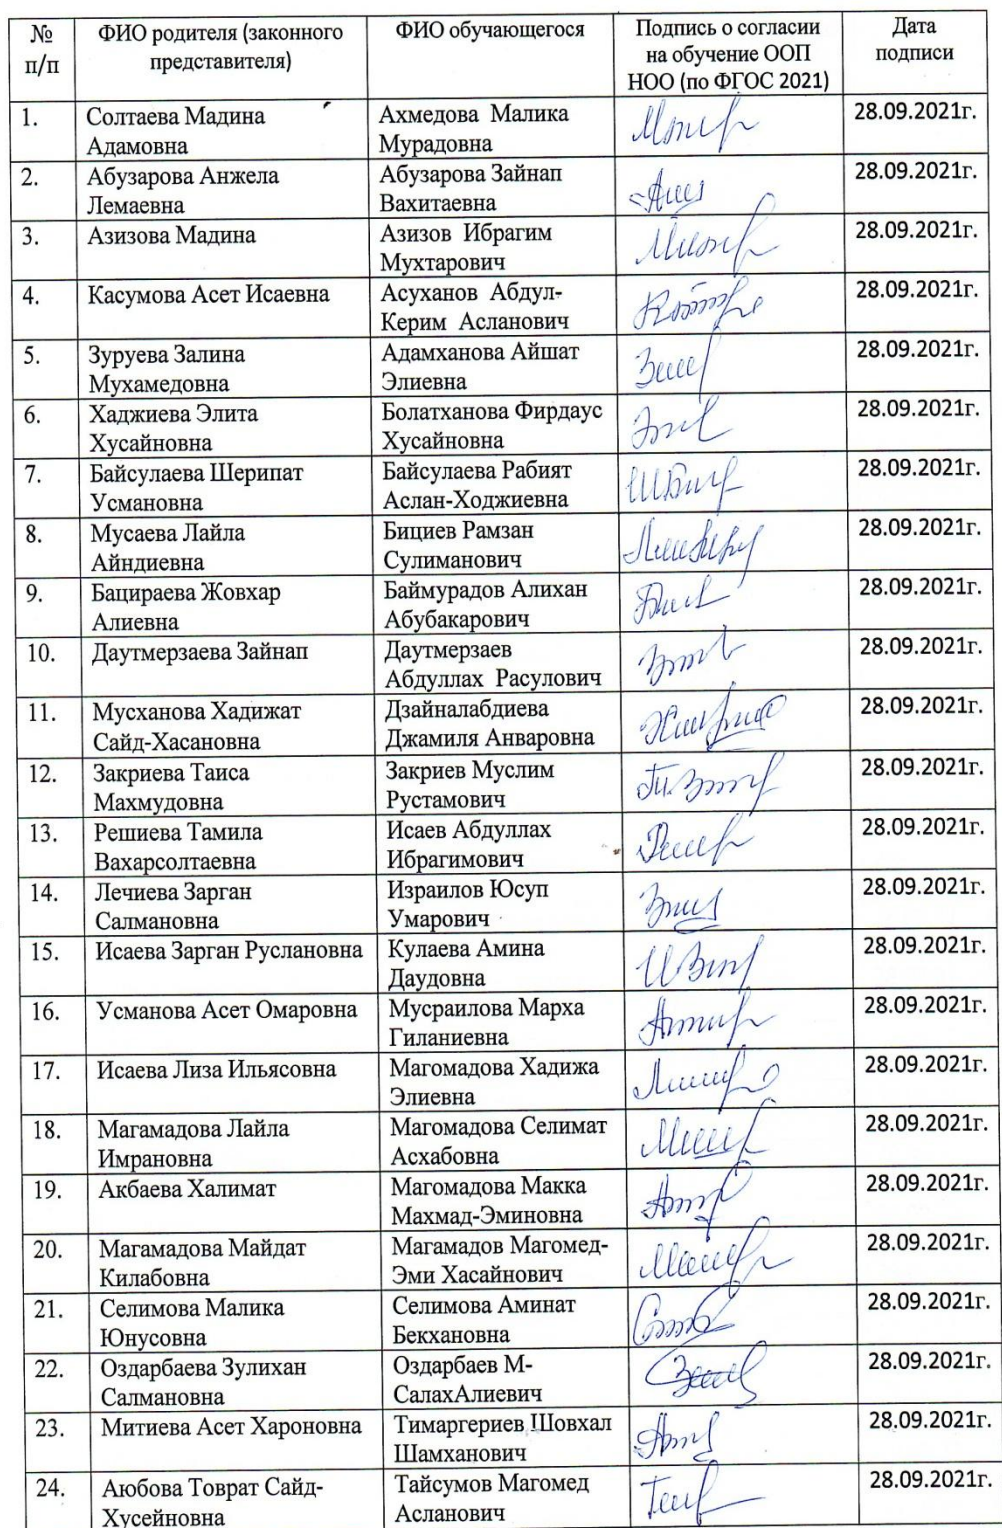 № п/п ФИО родителя (законного представителя) ФИО обучающегося Подпись о согласии на обучение ООП НОО (по ФГОС 2021) Дата подписи
1. Солтаева Мадина Адамовна Ахмедова Малика Мурадовна 28.09.2021г.
2. Абузарова Анжела Лемаевна Абузарова Зайнап Вахитаевна 28.09.2021г.
3. Азизова Мадина Азизов Ибрагим Мухтарович 28.09.2021г.
4. Касумова Асет Исаевна Асуханов Абдул-Керим Асланович 28.09.2021г.
5. Зуруева Залина Мухамедовна Адамханова Айшат Элиевна 28.09.2021г.
6. Хаджиева Элита Хусайновна Болатханова Фирдаус Хусайновна 28.09.2021г.
7. Байсулаева Шерипат Усмановна Байсулаева Рабият Аслан-Ходжиевна 28.09.2021г.
8. Мусаева Лайла Айндиевна Бициев Рамзан Сулиманович 28.09.2021г.
9. Бацираева Жовхар Алиевна Баймурадов Алихан Абубакарович 28.09.2021г.
10. Даутмерзаева Зайнап Даутмерзаев Абдуллах Расулович 28.09.2021г.
11. Мусханова Хадижат Сайд-Хасановна Дзайналабдиева Джамиля Анваровна 28.09.2021г.
12. Закриева Таиса Махмудовна Закриев Муслим Рустамович 28.09.2021г.
13. Решиева Тамила Вахарсолтаевна Исаев Абдуллах Ибрагимович 28.09.2021г.
14. Лечиева Зарган Салмановна Израилов Юсуп Умарович 28.09.2021г.
15. Исаева Зарган Руслановна Кулаева Амина Даудовна 28.09.2021г.
16. Усманова Асет Омаровна Мусраилова Марха Гиланиевна 28.09.2021г.
17. Исаева Лиза Ильясовна Магомадова Хадижа Элиевна 28.09.2021г.
18. Магамадова Лайла Имрановна Магомадова Селимат Асхабовна 28.09.2021г.
19. Акбаева Халимат Магомадова Макка Махмад-Эминовна 28.09.2021г.
20. Магамадова Майдат Килабовна Магамадов Магомед-Эми Хасайнович 28.09.2021г.
21. Селимова Малика Юнусовна Селимова Аминат Бекхановна 28.09.2021г.
22. Оздарбаева Зулихан Салмановна Оздарбаев М-СалахАлиевич 28.09.2021г.
23. Митиева Асет Хароновна Тимаргериев Шовхал Шамханович 28.09.2021г.
24. Аюбова Товрат Сайд-Хусейновна Тайсумов Магомед Асланович 28.09.2021г.